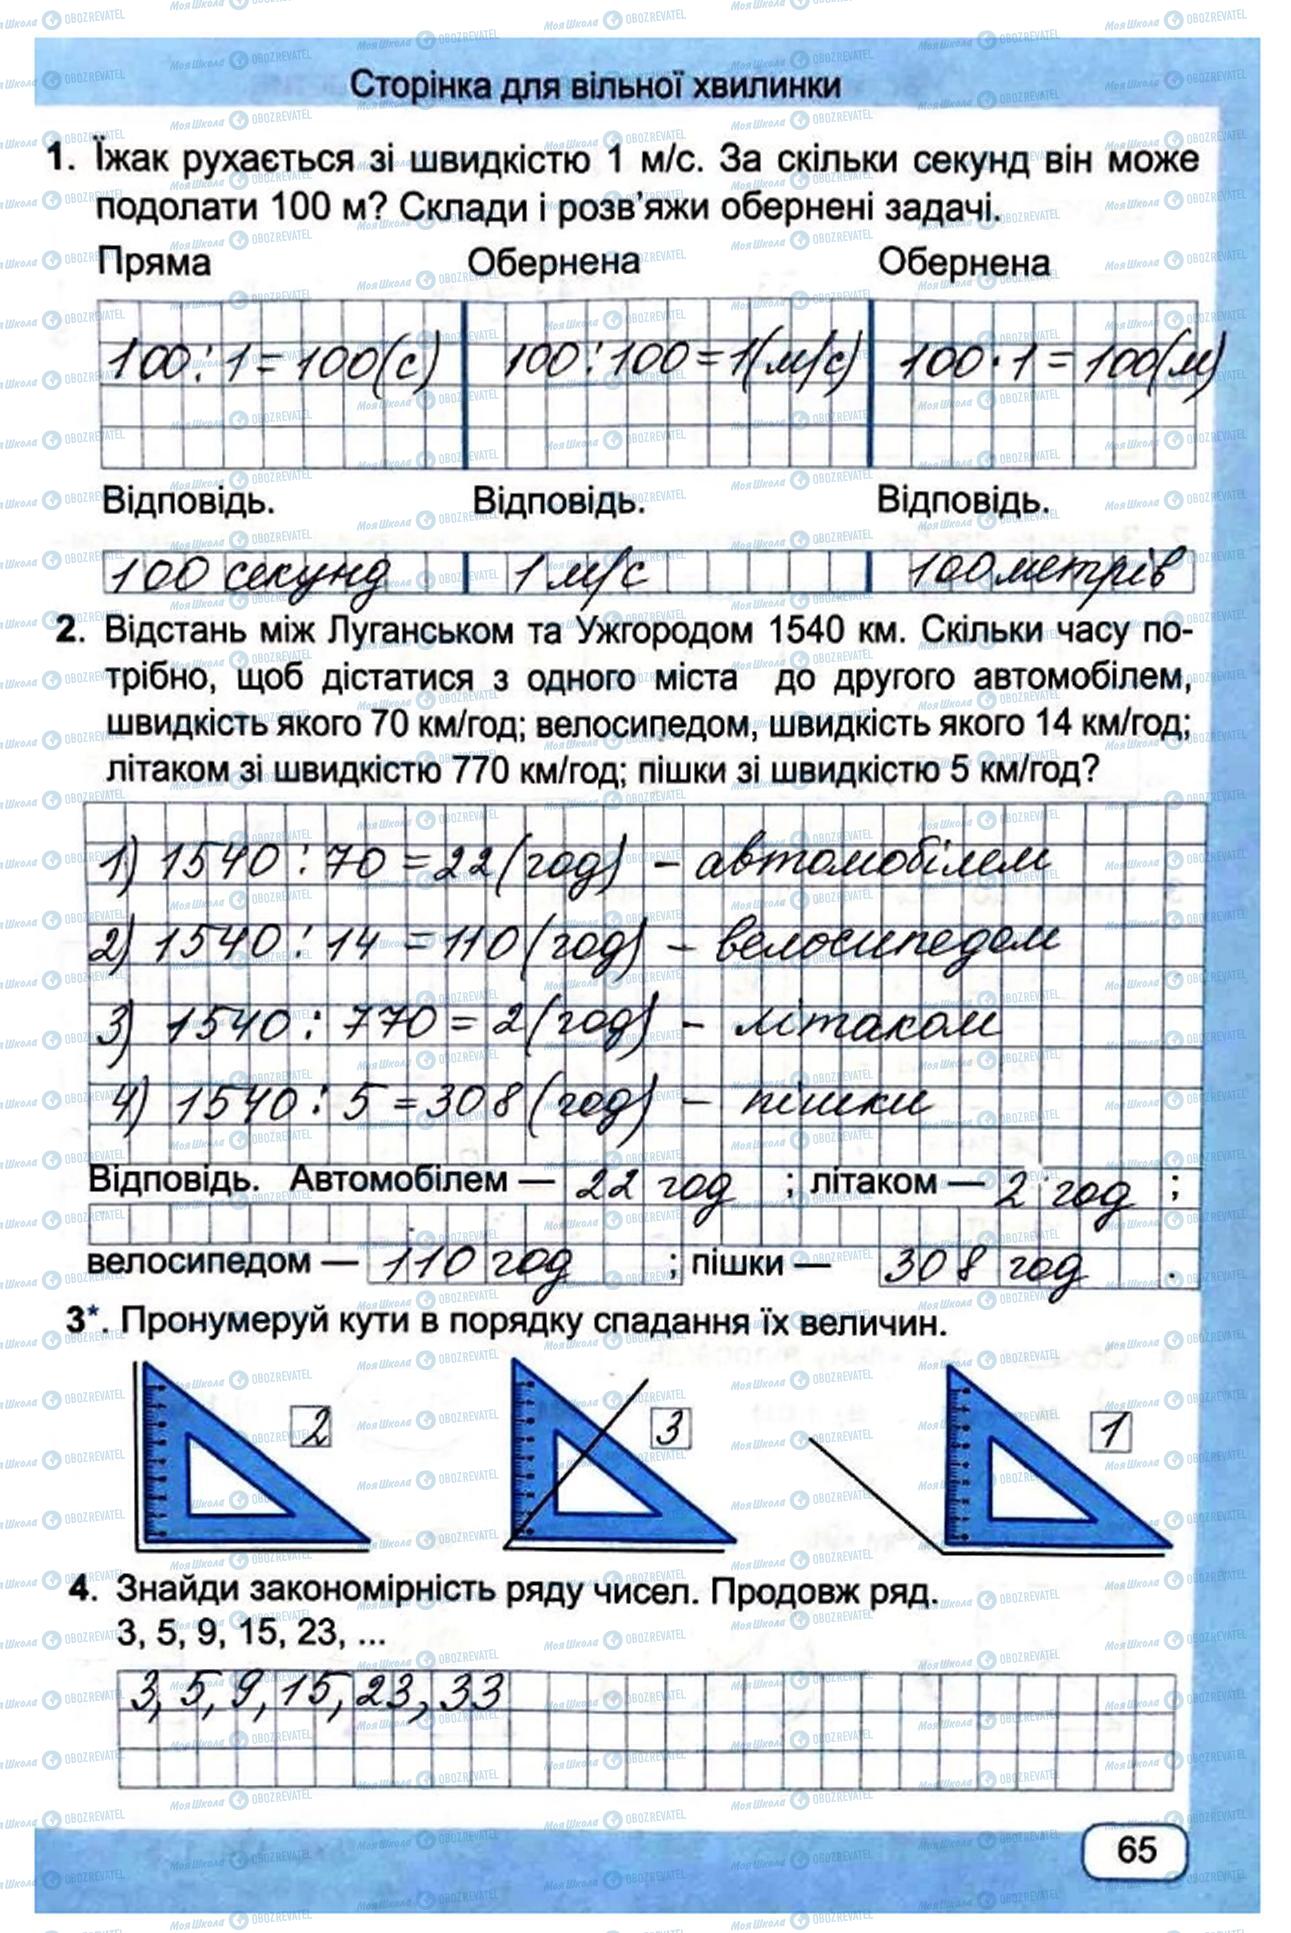 Сторінка для вільної хвилинки
1. Їжак рухається зі швидкістю 1 м/с. За скільки секунд він може
подолати 100 м? Склади і розв'яжи обернені задачі.
Пряма Обернена Обернена
100:1=100(с) 100:100=1(м/с) 100·1=100(м)
Відповідь. Відповідь. Відповідь.
100 секунд 1 м/с 100 метрів
2. Відстань між Луганськом та Ужгородом 1540 км. Скільки часу по-
трібно, щоб дістатися з одного міста до другого автомобілем,
швидкість якого 70 км/год; велосипедом, швидкість якого 14 км/год;
літаком зі швидкістю 770 км/год; пішки зі швидкістю 5 км/год?
1) 1540:70=22(год) – автомобілем
2) 1540:14=110(год) – велосипедом
3) 1540:770=2(год) – літаком
4) 1540:5=308(год) – пішки
Відповідь. Автомобілем — 22 год ; літаком — 2 год ;
велосипедом — 110 год ; пішки — 308 год .
3*. Пронумеруй кути в порядку спадання їх величин.
2 3 1
4. Знайди закономірність ряду чисел. Продовж ряд.
3, 5, 9, 15, 23, ...
3, 5, 9, 15, 23, 33
65
МояШкола OBOZREVATEL